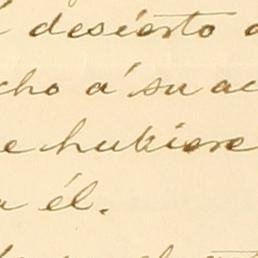 desierto
cho á su ac
e hubiere
a él.